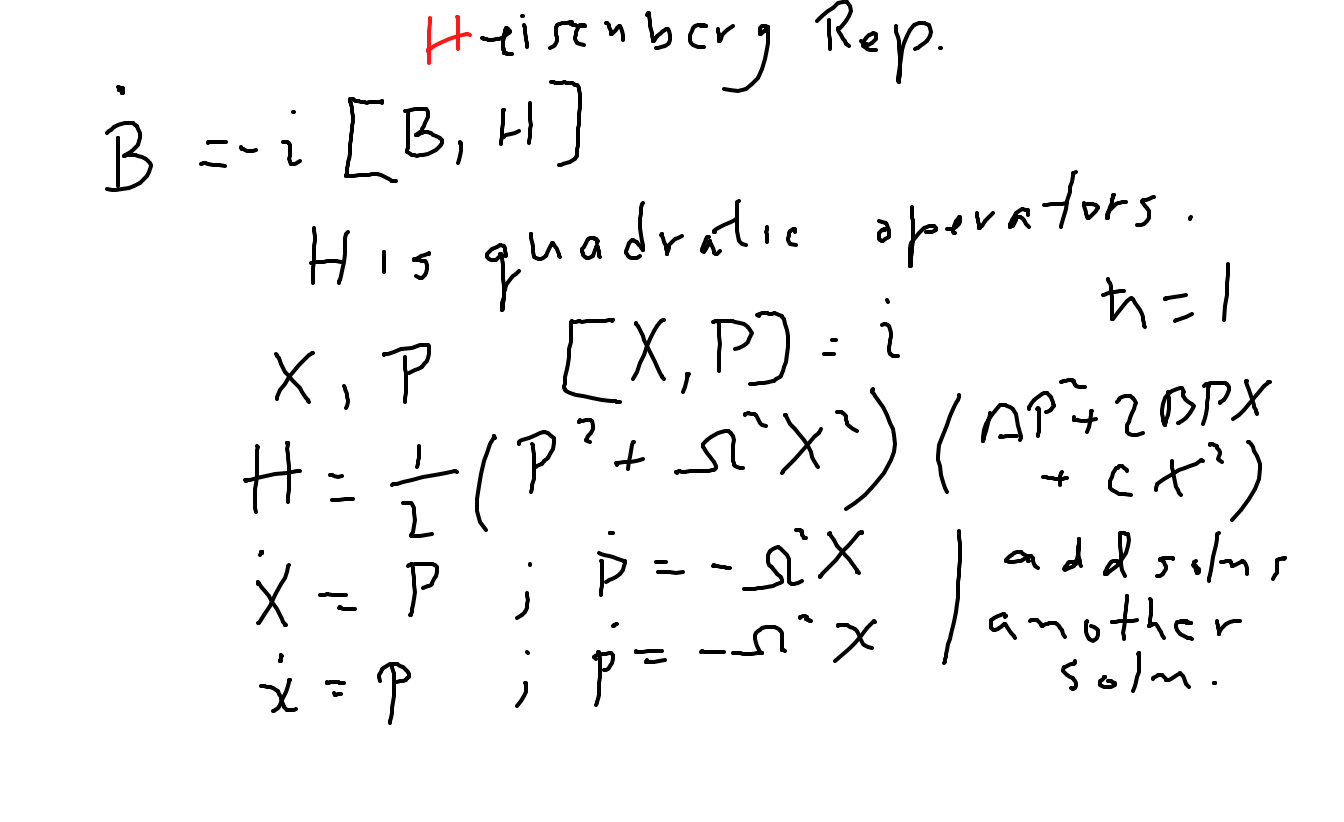 Heisenberg Rep.
Ḃ = -i [B, H]
H is quadratic operators.
ħ = 1
X, P [X, P] = i
H = 1/2 (P² + Ω²X²) (AP² + 2BPX + CX²)
Ẋ = P ; Ṗ = -Ω²X | add solns
ẋ = p ; ṗ = -Ω²x | another
soln.